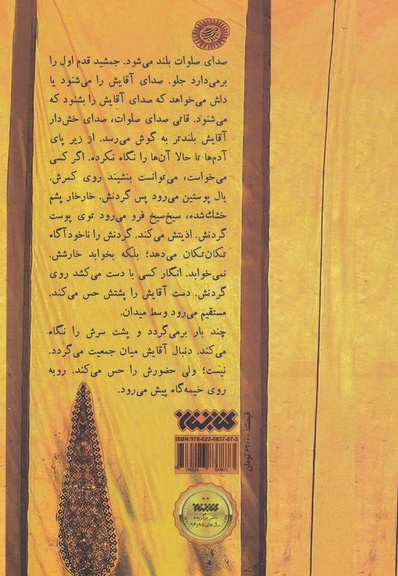 صدای صلوات بلند می‌شود. جمشید قدم اول را
برمی‌دارد جلو. صدای آقایش را می‌شنود یا
دلش می‌خواهد که صدای آقایش را بشنود که
می‌شنود. قاتی صدای صلوات، صدای خش‌دار
آقایش بلندتر به گوش می‌رسد. از زیر پای
آدم‌ها تا حالا آن‌ها را نگاه نکرده. اگر کسی
می‌خواست، می‌توانست بنشیند روی کمرش.
یال پوستین می‌رود پس گردنش. خارخار پشم
خشك‌شده، سیخ‌سیخ فرو می‌رود توی پوست
گردنش. اذیتش می‌کند. گردنش را ناخودآگاه
تکان‌تکان می‌دهد؛ بلکه بخوابد خارشش.
نمی‌خوابد. انگار کسی با دست می‌کشد روی
گردنش. دست آقایش را پشتش حس می‌کند.
مستقیم می‌رود وسط میدان.
چند بار برمی‌گردد و پشت سرش را نگاه
می‌کند. دنبال آقایش میان جمعیت می‌گردد.
نیست؛ ولی حضورش را حس می‌کند. رو به
روی خیمه‌گاه پیش می‌رود.
ISBN:978-622-6837-87-3